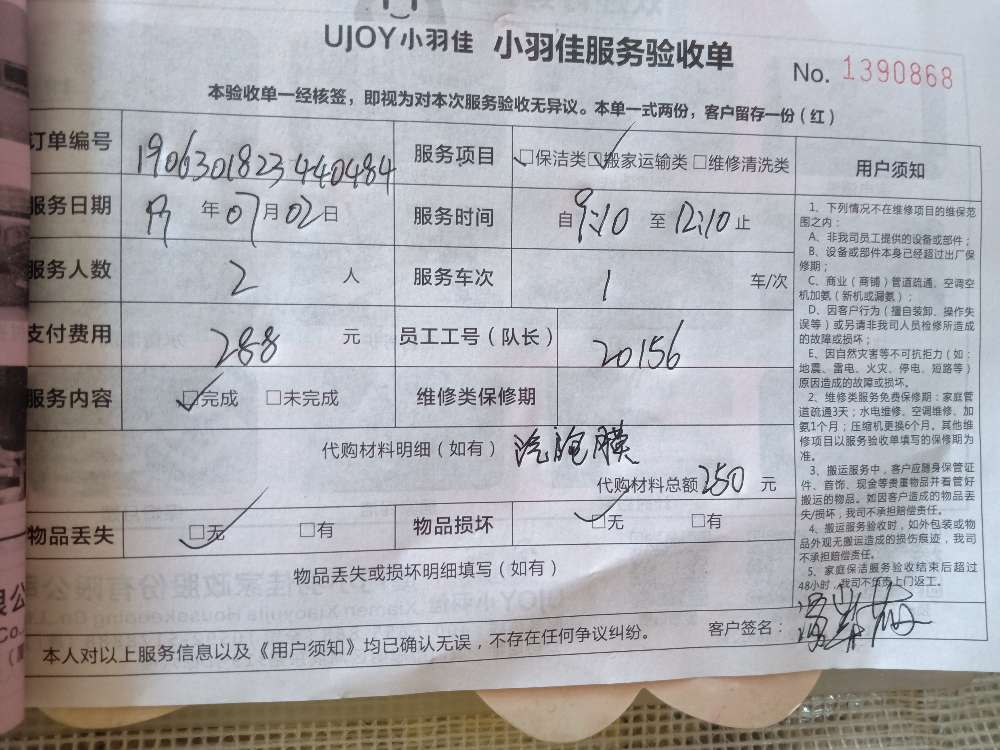 UJOY小羽佳 小羽佳服务验收单
No. 1390868
本验收单一经核签，即视为对本次服务验收无异议。本单一式两份，客户留存一份（红）
订单编号 1906301823440484 服务项目 □保洁类 □搬家运输类 □维修清洗类
服务日期 19 年 07 月 02 日 服务时间 自 9:10 至 12:10 止
服务人数 2 人 服务车次 1 车/次
支付费用 288 元 员工工号（队长） 20156
服务内容 □完成 □未完成 维修类保修期
代购材料明细（如有） 汽泡膜
代购材料总额 250 元
物品丢失 □无 □有 物品损坏 □无 □有
物品丢失或损坏明细填写（如有）
本人对以上服务信息以及《用户须知》均已确认无误，不存在任何争议纠纷。 客户签名：
用户须知
1、下列情况不在维修项目的维保范
围之内：
A、非我司员工提供的设备或部件；
B、设备或部件本身已经超过出厂保
修期；
C、商业（商铺）管道疏通、空调空
机加氨（新机或漏氨）；
D、因客户行为（擅自装卸、操作失
误等）或另请非我司人员检修所造成
的故障或损坏；
E、因自然灾害等不可抗拒力（如：
地震、雷电、火灾、停电、短路等）
原因造成的故障或损坏。
2、维修类服务免费保修期：家庭管
道疏通3天；水电维修、空调维修、加
氨1个月；压缩机更换6个月。其他维
修项目以服务验收单填写的保修期为
准。
3、搬运服务中，客户应随身保管证
件、首饰、现金等贵重物品并看管好
搬运的物品。如因客户造成的物品丢
失/损坏，我司不承担赔偿责任。
4、搬运服务验收时，如外包装或物
品外观无搬运造成的损伤痕迹，我司
不承担赔偿责任。
5、家庭保洁服务验收结束后超过
48小时，我司不负责上门返工。